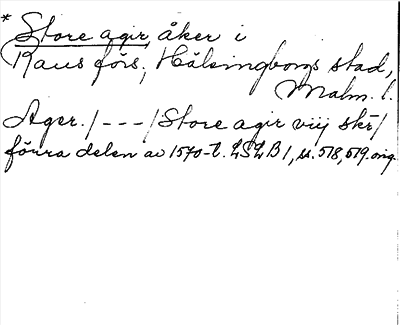 * Store agir, åker i
Raus förs., Hälsingborgs stad,
Malm. l.
Ager. / - - - / Store agir viij skr /
förra delen av 1570-t. LSLB 1, ss. 518, 519. orig.